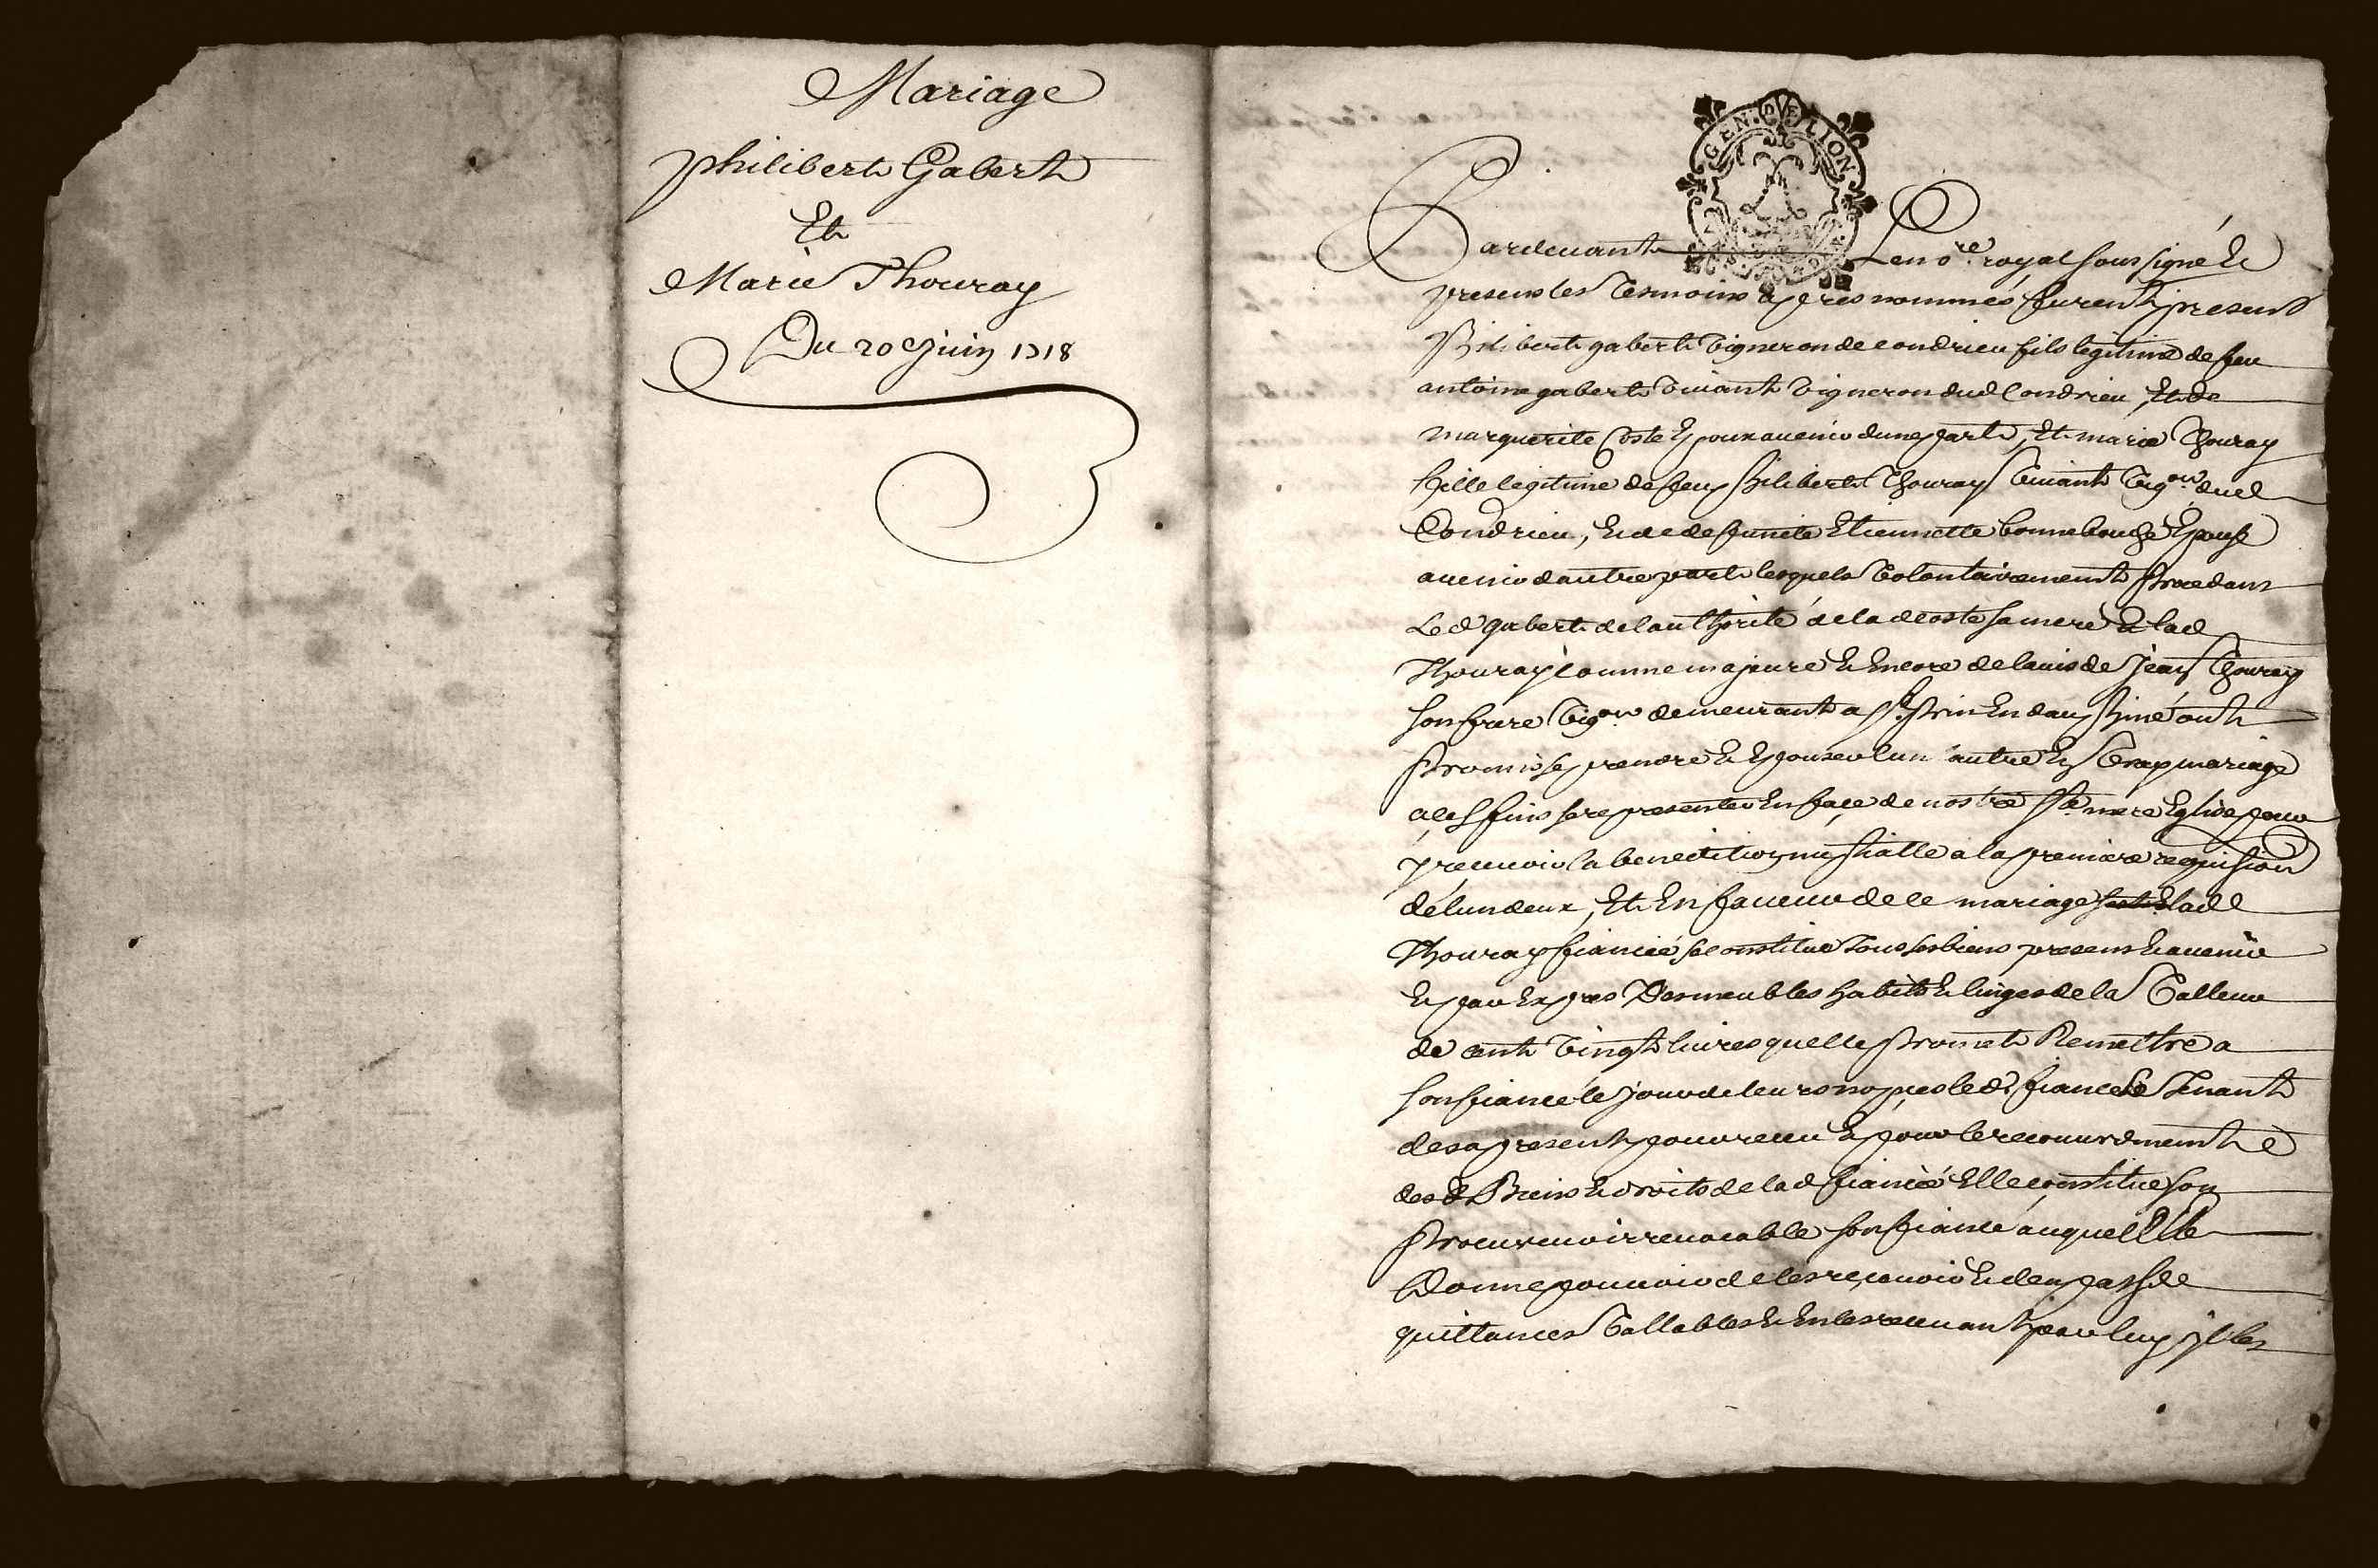 Mariage
philibert Gabert
Et
Marie Thouray
Du 20e Juin 1718
GEN. DE LION
Pardevant Le no.re royal soussigné Et
presens les tesmoins apres nommés furent present
Philibert gabert vigneron de condrieu fils legitime de feu
antoine gabert vivant vigneron dud Condrieu, Et de
marguerite Coste Epoux avenir dune part, Et marie Thouray
fille legitime de feu philibert Thouray vivant vigon dud
Condrieu, Et de defuncte Etiennette bonnebouche Epouse
avenir dautre part lesquels volontairement procedant
Led gabert de lauthorité de lad coste sa mere Et lad
Thouray comme majeure Et Encore de lavis de Jean Thouray
son frere vigon demeurant a St prin En dauphiné ont
promis se prendre Et Epouser lun autre En vray mariage
a ces fins se representer En face de nostre Ste mere Eglise pour
y recevoir la benediction nuptialle a la premiere requision
de lun deux, Et En faveur de ce mariage lad
Thouray fiancée se constitue tous ses biens presens Et avenir
Et par Expres Des meubles habits Et linges de la valleur
de cent vingt livres quelle promet Remettre a
son fiancé le jour de leurs nopces led fiancé Le tenant
des a present pour receu Et pour le recouvrement
des d Biens Et droits de lad fiancée Elle constitue son
procureur irrevocable son fiancé auquel Elle
Donne pouvoir de les recevoir Et den passer
quittances vallables Et En les recevant par luy il les